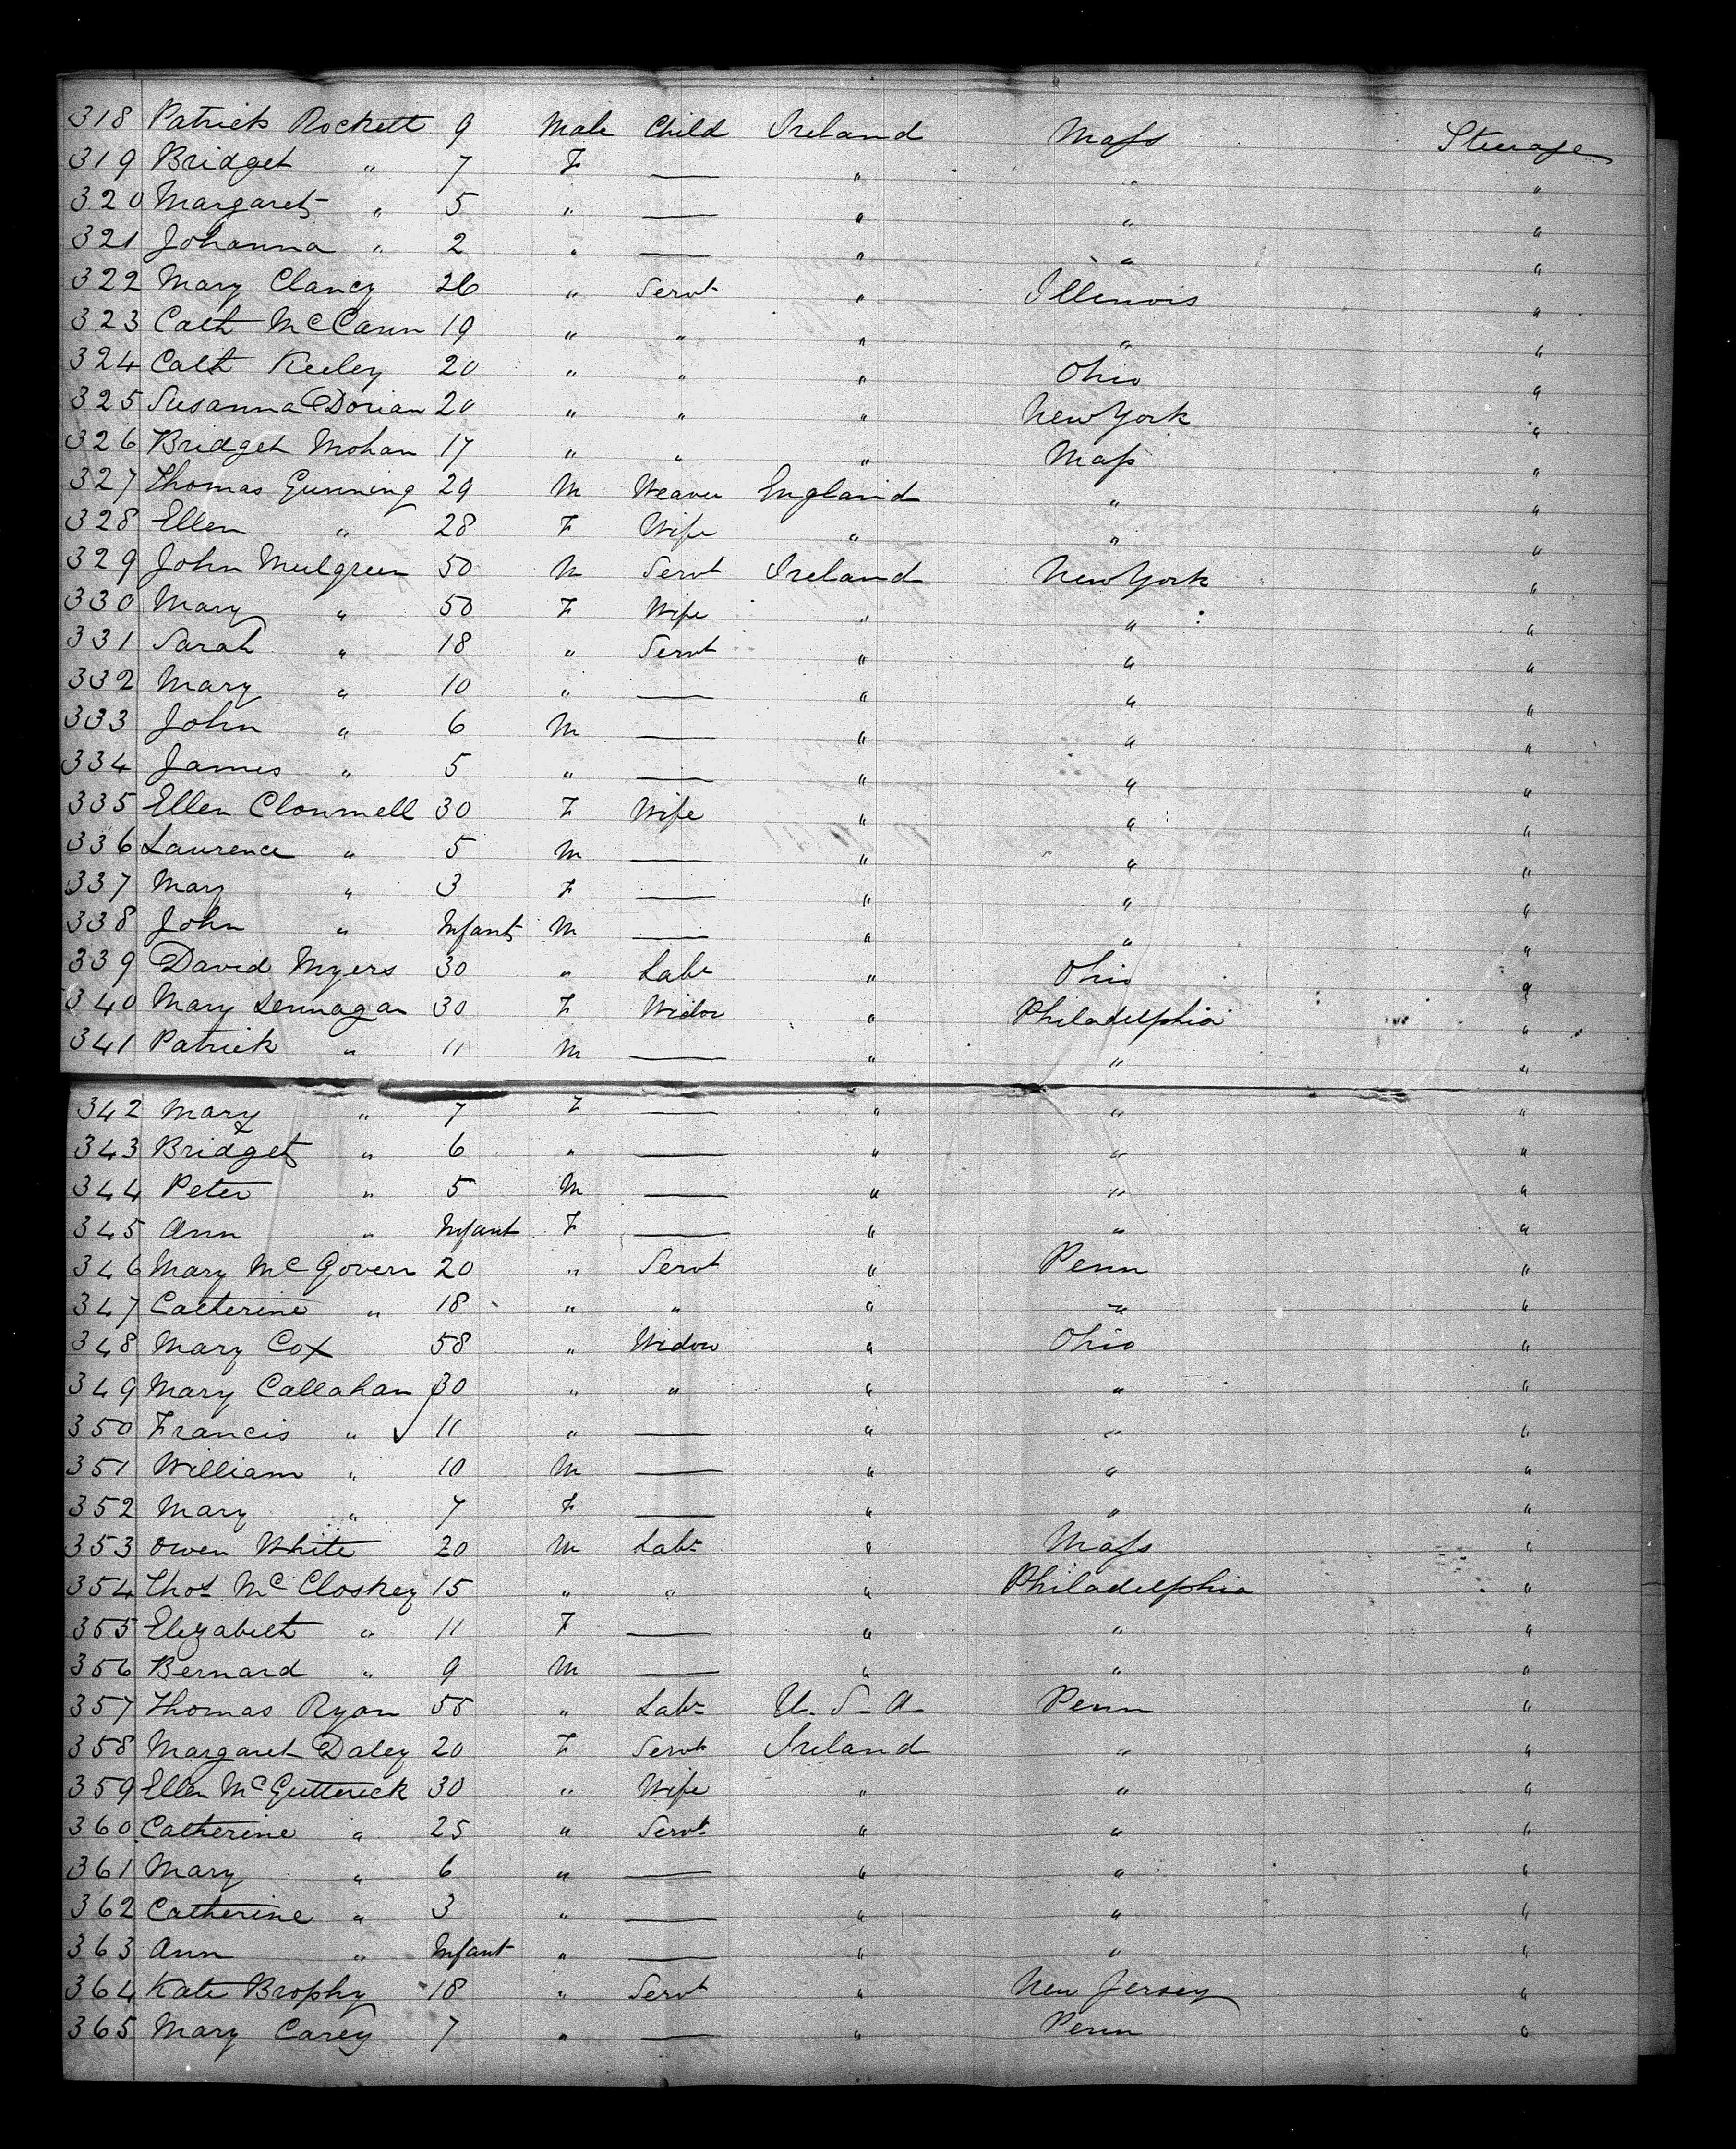 318 Patrick Rockett 9 Male Child Ireland Mass Steerage
319 Bridget " 7 F — " " "
320 Margaret " 5 " — " " "
321 Johanna " 2 " — " " "
322 Mary Clancy 26 " Servt " Illinois "
323 Cath McCann 19 " " " " "
324 Cath Keeley 20 " " " Ohio "
325 Susanna Dorian 20 " " " New York "
326 Bridget Mohan 17 " " " Mass "
327 Thomas Gunning 29 M Weaver England " "
328 Ellen " 28 F Wife " " "
329 John Mulgreen 50 M Servt Ireland New York "
330 Mary " 50 F Wife " " "
331 Sarah " 18 " Servt " " "
332 Mary " 10 " — " " "
333 John " 6 M — " " "
334 James " 5 " — " " "
335 Ellen Clonmell 30 F Wife " " "
336 Laurence " 5 M — " " "
337 Mary " 3 F — " " "
338 John " Infant M — " " "
339 David Myers 30 " Labr " Ohio "
340 Mary Lennagan 30 F Widow " Philadelphia "
341 Patrick " 11 M — " " "
342 Mary " 7 F — " " "
343 Bridget " 6 " — " " "
344 Peter " 5 M — " " "
345 Ann " Infant F — " " "
346 Mary McGovern 20 " Servt " Penn "
347 Catherine " 18 " " " " "
348 Mary Cox 58 " Widow " Ohio "
349 Mary Callahan 30 " " " " "
350 Francis " 11 " — " " "
351 William " 10 M — " " "
352 Mary " 7 F — " " "
353 Owen White 20 M Labr " Mass "
354 Thos McCloskey 15 " " " Philadelphia "
355 Elizabeth " 11 F — " " "
356 Bernard " 9 M — " " "
357 Thomas Ryan 55 " Labr U.S.A. Penn "
358 Margaret Daley 20 F Servt Ireland " "
359 Ellen McGutterick 30 " Wife " " "
360 Catherine " 25 " Servt " " "
361 Mary " 6 " — " " "
362 Catherine " 3 " — " " "
363 Ann " Infant " — " " "
364 Kate Brophy 18 " Servt " New Jersey "
365 Mary Carey 7 " — " Penn "